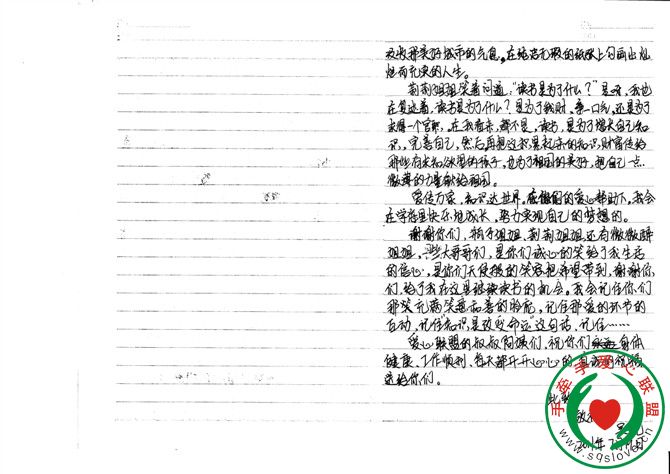 及长那美好城市的气息。在纯洁无瑕的纸张上勾画出灿
烂而充实的人生。
莉莉姐姐笑着问道:"读书是为了什么?"是呀,我也
在复述着,读书是为了什么?是为了钱财,争一口气,还是为了
求得一个官职,在我看来,都不是,读书,是为了增长自己知
识,完善自己,然后再把这积累起来的知识,财富传给
那些有求知欲望的孩子,也为了祖国的美好,把自己一点
微薄的力量献给祖国。
爱传万家,知识达世界。在你们的爱心帮助下,我会
在学府里快乐地成长,努力实现自己的梦想的。
谢谢你们,莉莉姐姐还有微微静
姐姐,一些大哥哥们,是你们诚心的笑给了我生活
的信心,是你们天使般的笑容把希望带到,谢谢你
们给了我在这里继续读书的机会。我会记住你们
那笑充满笑意和善的脸庞,记住那爱的环节的
互动,记住"知识是改变命运"这句话,记住……
爱心联盟的叔叔阿姨们,祝你们身体
健康、工作顺利,每天都开开心心的
送给你们。
此致
手牵手爱心联盟
www.sqslove.cn